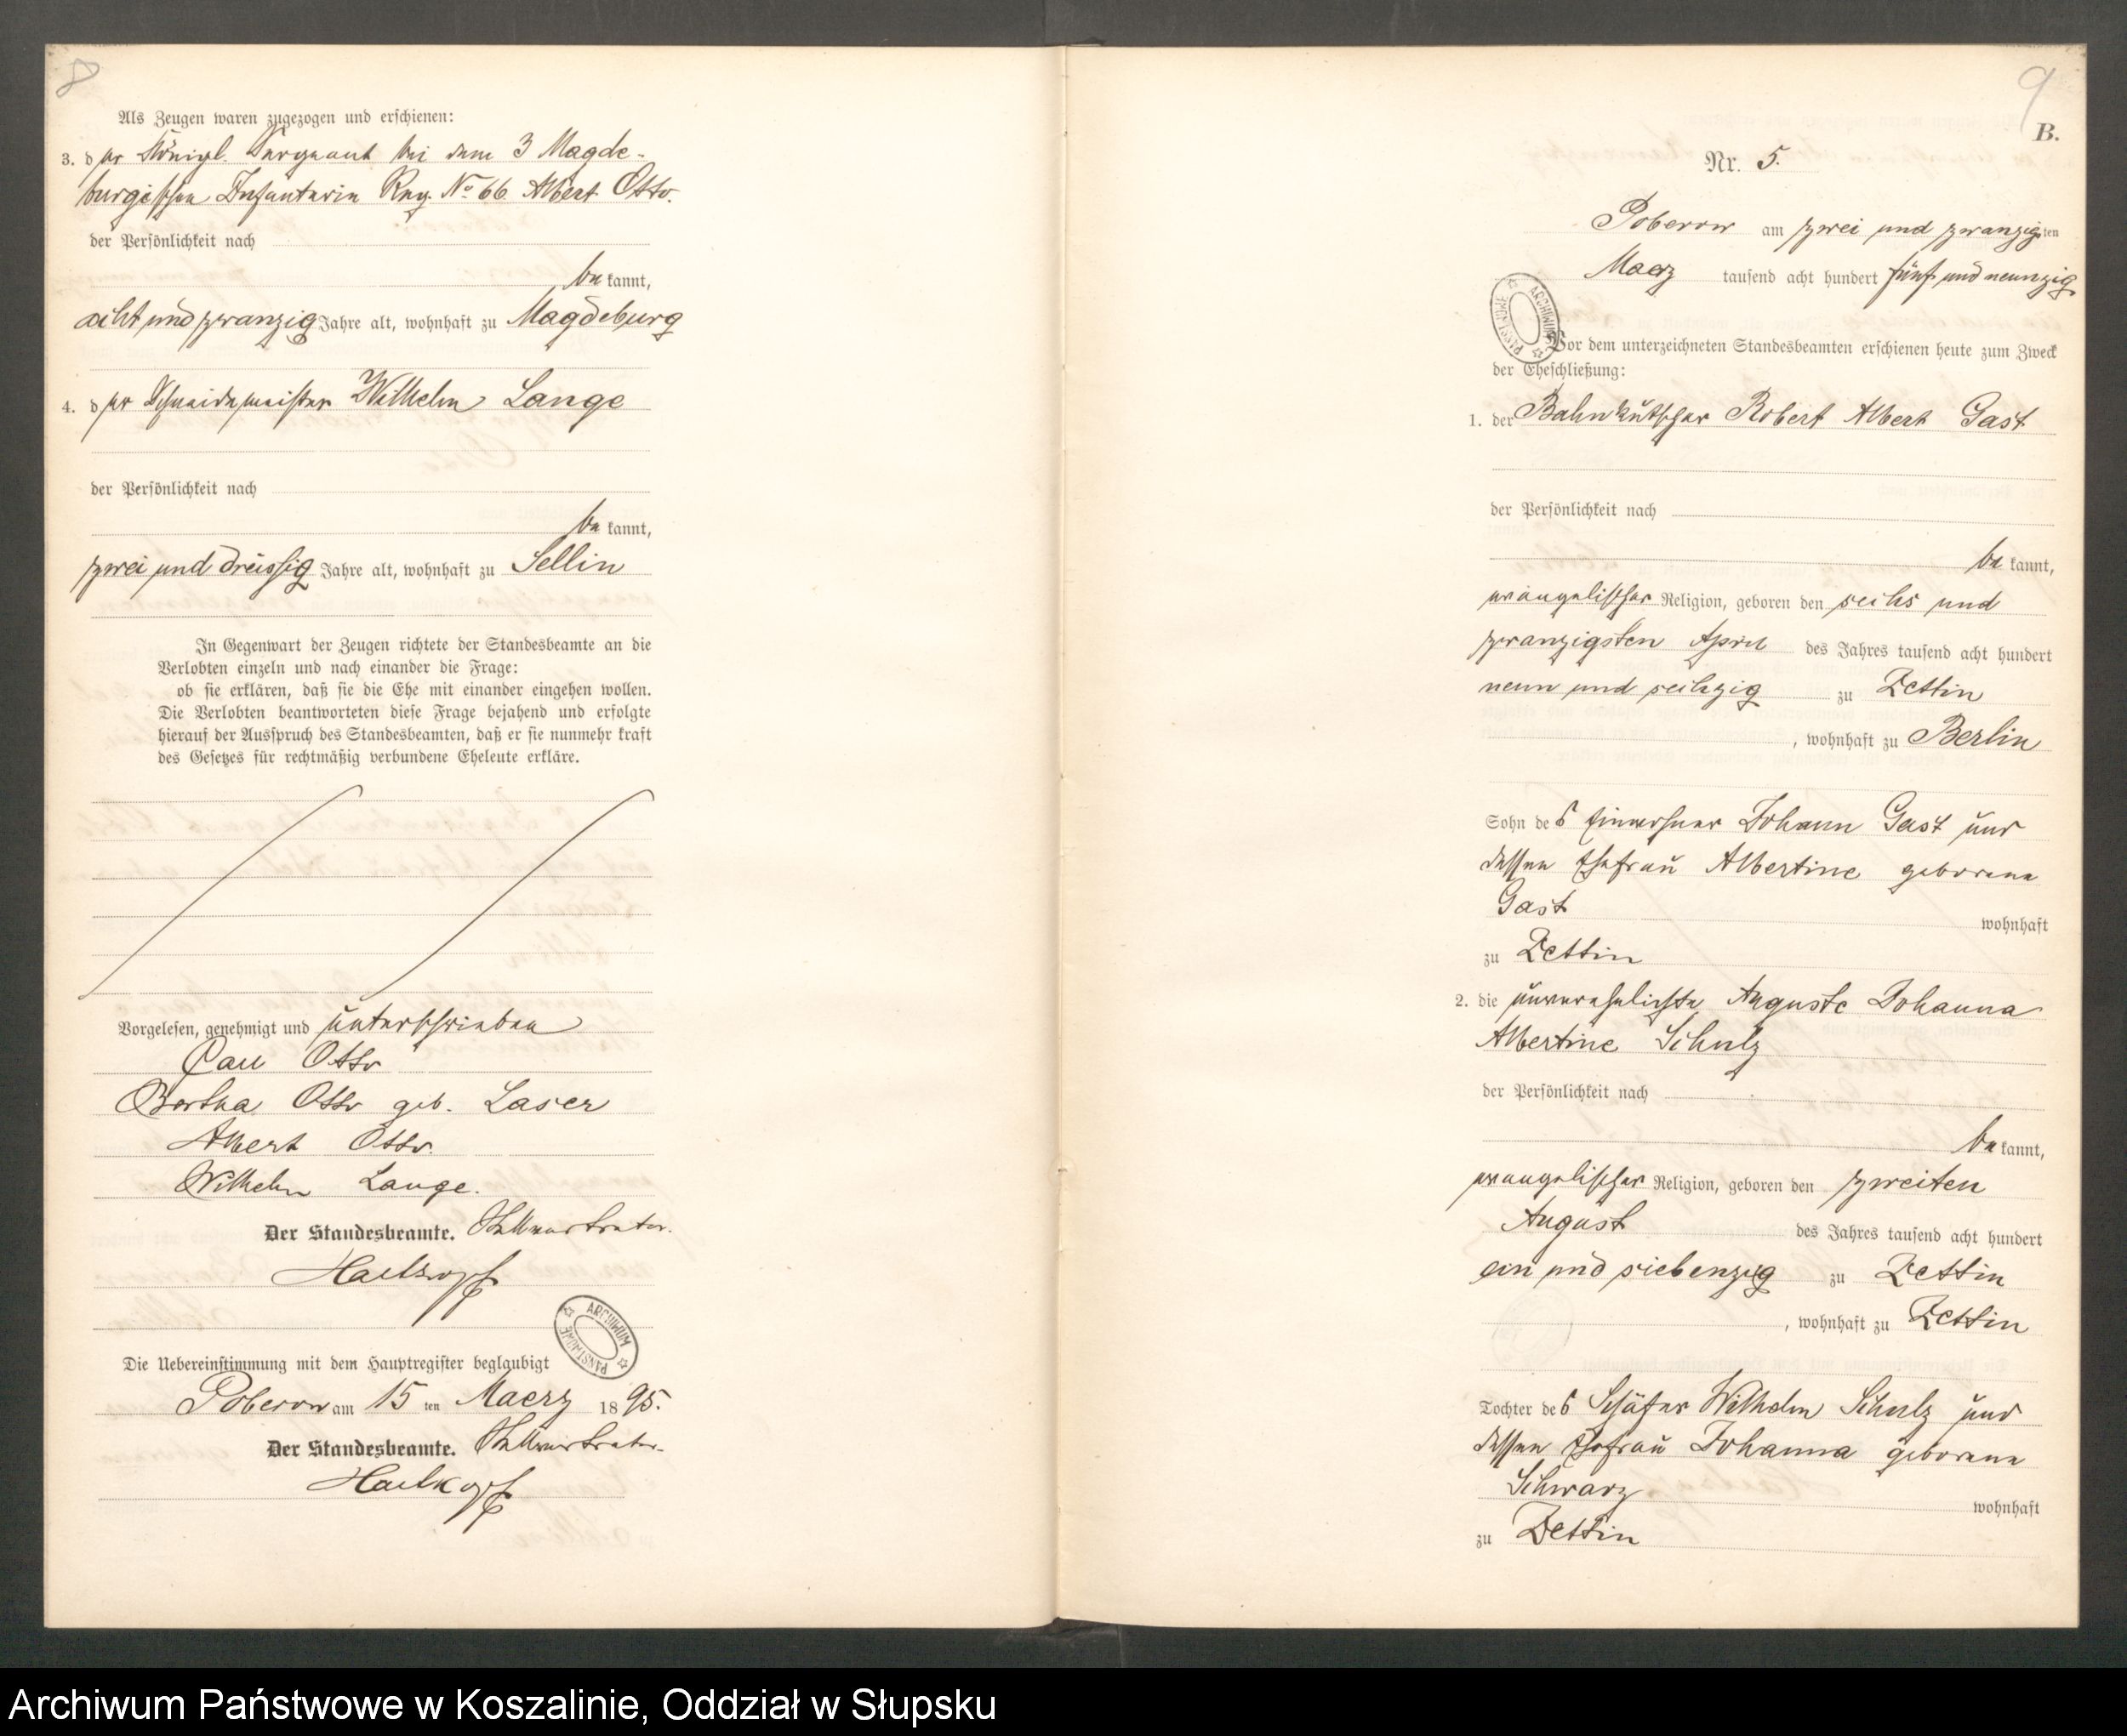 8
Als Zeugen waren zugezogen und erschienen:
3. der Königl. Sergeant bei dem 3 Magde-
burgischen Infanterie Reg. No 66 Albert Otto.
der Persönlichkeit nach
bekannt,
acht und zwanzig Jahre alt, wohnhaft zu Magdeburg
4. der Schneidemeister Wilhelm Lange
der Persönlichkeit nach
bekannt,
zwei und dreissig Jahre alt, wohnhaft zu Sellin
In Gegenwart der Zeugen richtete der Standesbeamte an die
Verlobten einzeln und nach einander die Frage:
ob sie erklären, daß sie die Ehe mit einander eingehen wollen.
Die Verlobten beantworteten diese Frage bejahend und erfolgte
hierauf der Ausspruch des Standesbeamten, daß er sie nunmehr kraft
des Gesetzes für rechtmäßig verbundene Eheleute erkläre.
Vorgelesen, genehmigt und unterschrieben
Carl Otto
Bertha Otto geb. Laser
Albert Otto.
Wilhelm Lange.
Der Standesbeamte. Stellvertreter.
ARCHIWUM PAŃSTWOWE
Die Uebereinstimmung mit dem Hauptregister beglaubigt
Poberow am 15ten Maerz 1895.
Der Standesbeamte. Stellvertreter.
9
B.
Nr. 5.
Poberow am zwei und zwanzigsten
Maerz tausend acht hundert fünf und neunzig
ARCHIWUM PAŃSTWOWE
Vor dem unterzeichneten Standesbeamten erschienen heute zum Zweck
der Eheschließung:
1. der Bahnkutscher Robert Albert Gast
der Persönlichkeit nach
bekannt,
evangelischer Religion, geboren den sechs und
zwanzigsten April des Jahres tausend acht hundert
neun und sechzig zu Zettin
, wohnhaft zu Berlin
Sohn des Einwohner Johann Gast und
dessen Ehefrau Albertine geborene
Gast wohnhaft
zu Zettin
2. die unverehelichte Auguste Johanna
Albertine Schulz
der Persönlichkeit nach
bekannt,
evangelischer Religion, geboren den zweiten
August des Jahres tausend acht hundert
ein und siebenzig zu Zettin
, wohnhaft zu Zettin
Tochter des Schäfer Wilhelm Schulz und
dessen Ehefrau Johanna geborene
Schwarz wohnhaft
zu Zettin
Archiwum Państwowe w Koszalinie, Oddział w Słupsku